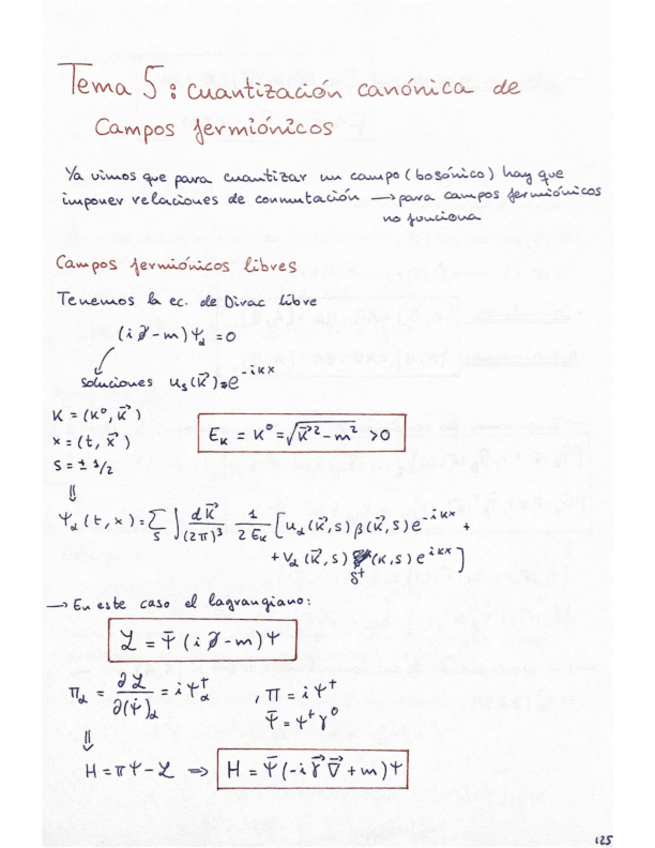 Tema 5: cuantización canónica de
Campos fermiónicos
Ya vimos que para cuantizar un campo (bosónico) hay que
imponer relaciones de conmutación → para campos fermiónicos
no funciona
Campos fermiónicos libres
Tenemos la ec. de Dirac libre
(i∂̸ - m)Ψ_α = 0
soluciones u_s(k⃗) e^{-ikx}
K = (K⁰, K⃗)
x = (t, x⃗)
S = ± 1/2
E_K = K⁰ = √(K⃗² - m²) > 0
⇓
Ψ_α(t, x) = Σ_s ∫ dK⃗/(2π)³ 1/(2E_K) [u_α(K⃗, s) β(K⃗, s) e^{-iKx} +
+ V_α(K⃗, s) δ†(K, s) e^{iKx}]
→ En este caso el lagrangiano:
ℒ = Ψ̄ (i∂̸ - m) Ψ
Π_α = ∂ℒ/∂(Ψ̇)_α = iΨ_α† , Π = iΨ†
Ψ̄ = Ψ†γ⁰
⇓
H = πΨ - ℒ ⇒ H = Ψ̄(-iγ⃗∇⃗ + m)Ψ
125